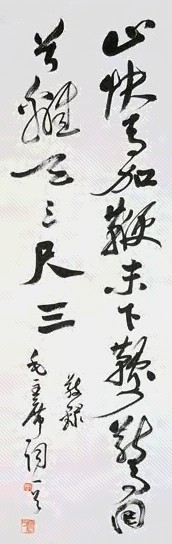 山快马加鞭未下鞍惊回
首离天三尺三
敬录
毛主席词一首